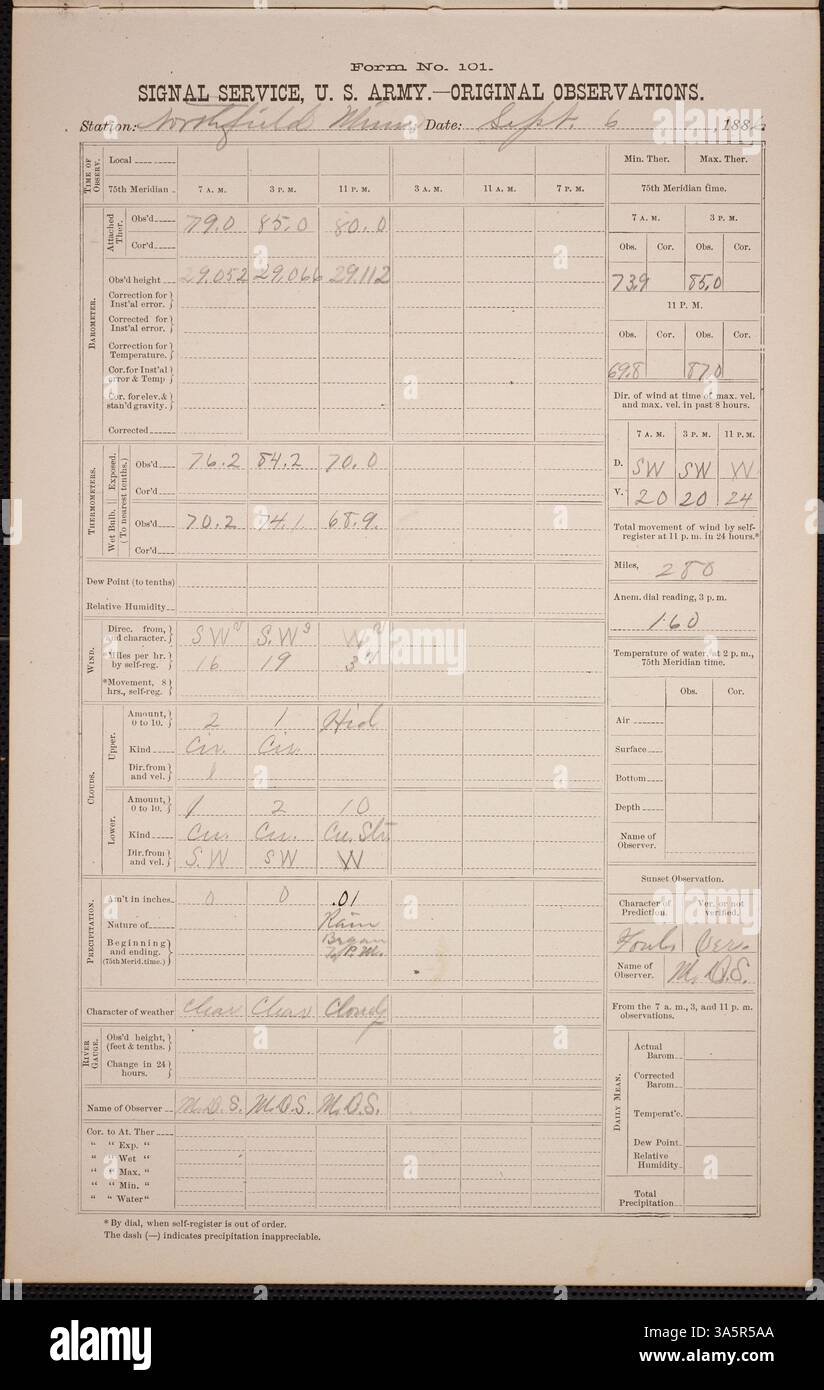 Form No. 101.
SIGNAL SERVICE, U. S. ARMY.—ORIGINAL OBSERVATIONS.
Station: Northfield Minn. Date: Sept. 6, 188
TIME OF OBSERV. Local
75th Meridian 7 A. M. 3 P. M. 11 P. M. 3 A. M. 11 A. M. 7 P. M.
BAROMETER.
Attached Ther.
Obs'd 79.0 85.0 80.0
Cor'd
Obs'd height 29.052 29.066 29.112
Correction for Inst'al error.
Corrected for Inst'al error.
Correction for Temperature.
Cor. for Inst'al error & Temp
Cor. for elev. & stan'd gravity.
Corrected
THERMOMETERS.
(To nearest tenths.)
Exposed.
Obs'd 76.2 84.2 70.0
Cor'd
Wet Bulb.
Obs'd 70.2 74.1 68.9.
Cor'd
Dew Point (to tenths)
Relative Humidity
WIND.
Direc. from, and character. SW S.W W
Miles per hr. by self-reg. 16 19 3
*Movement, 8 hrs., self-reg.
CLOUDS.
Upper.
Amount, 0 to 10. 2 1 Hid
Kind Cir. Cir.
Dir. from and vel.
Lower.
Amount, 0 to 10. 1 2 10
Kind Cu. Cu. Cu. Str.
Dir. from and vel. S.W SW W
PRECIPITATION.
Am't in inches 0 0 .01
Nature of Rain
Beginning and ending. (75th Merid. time.) Began P.M.
Character of weather Clear Clear Cloudy
RIVER GAUGE.
Obs'd height, (feet & tenths.
Change in 24 hours.
Name of Observer M.D.S. M.D.S. M.D.S.
Cor. to At. Ther
" " Exp. "
" " Wet "
" " Max. "
" " Min. "
" " Water"
* By dial, when self-register is out of order.
The dash (—) indicates precipitation inappreciable.
Min. Ther. Max. Ther.
75th Meridian time.
7 A. M. 3 P. M.
Obs. Cor. Obs. Cor.
73.9 85.0
11 P. M.
Obs. Cor. Obs. Cor.
69.8 87.0
Dir. of wind at time of max. vel. and max. vel. in past 8 hours.
7 A. M. 3 P. M. 11 P. M.
D. SW SW W
V. 20 20 24
Total movement of wind by self-register at 11 p. m. in 24 hours.*
Miles, 280
Anem. dial reading, 3 p. m.
160
Temperature of water, at 2 p. m., 75th Meridian time.
Obs. Cor.
Air
Surface
Bottom
Depth
Name of Observer.
Sunset Observation.
Character of Prediction. Ver. or not verified.
Ver.
Name of Observer. M.D.S.
From the 7 a. m., 3, and 11 p. m. observations.
DAILY MEAN.
Actual Barom
Corrected Barom
Temperat'e.
Dew Point
Relative Humidity
Total Precipitation
alamy
alamy
alamy
Image ID: 3A5R5AA
www.alamy.com